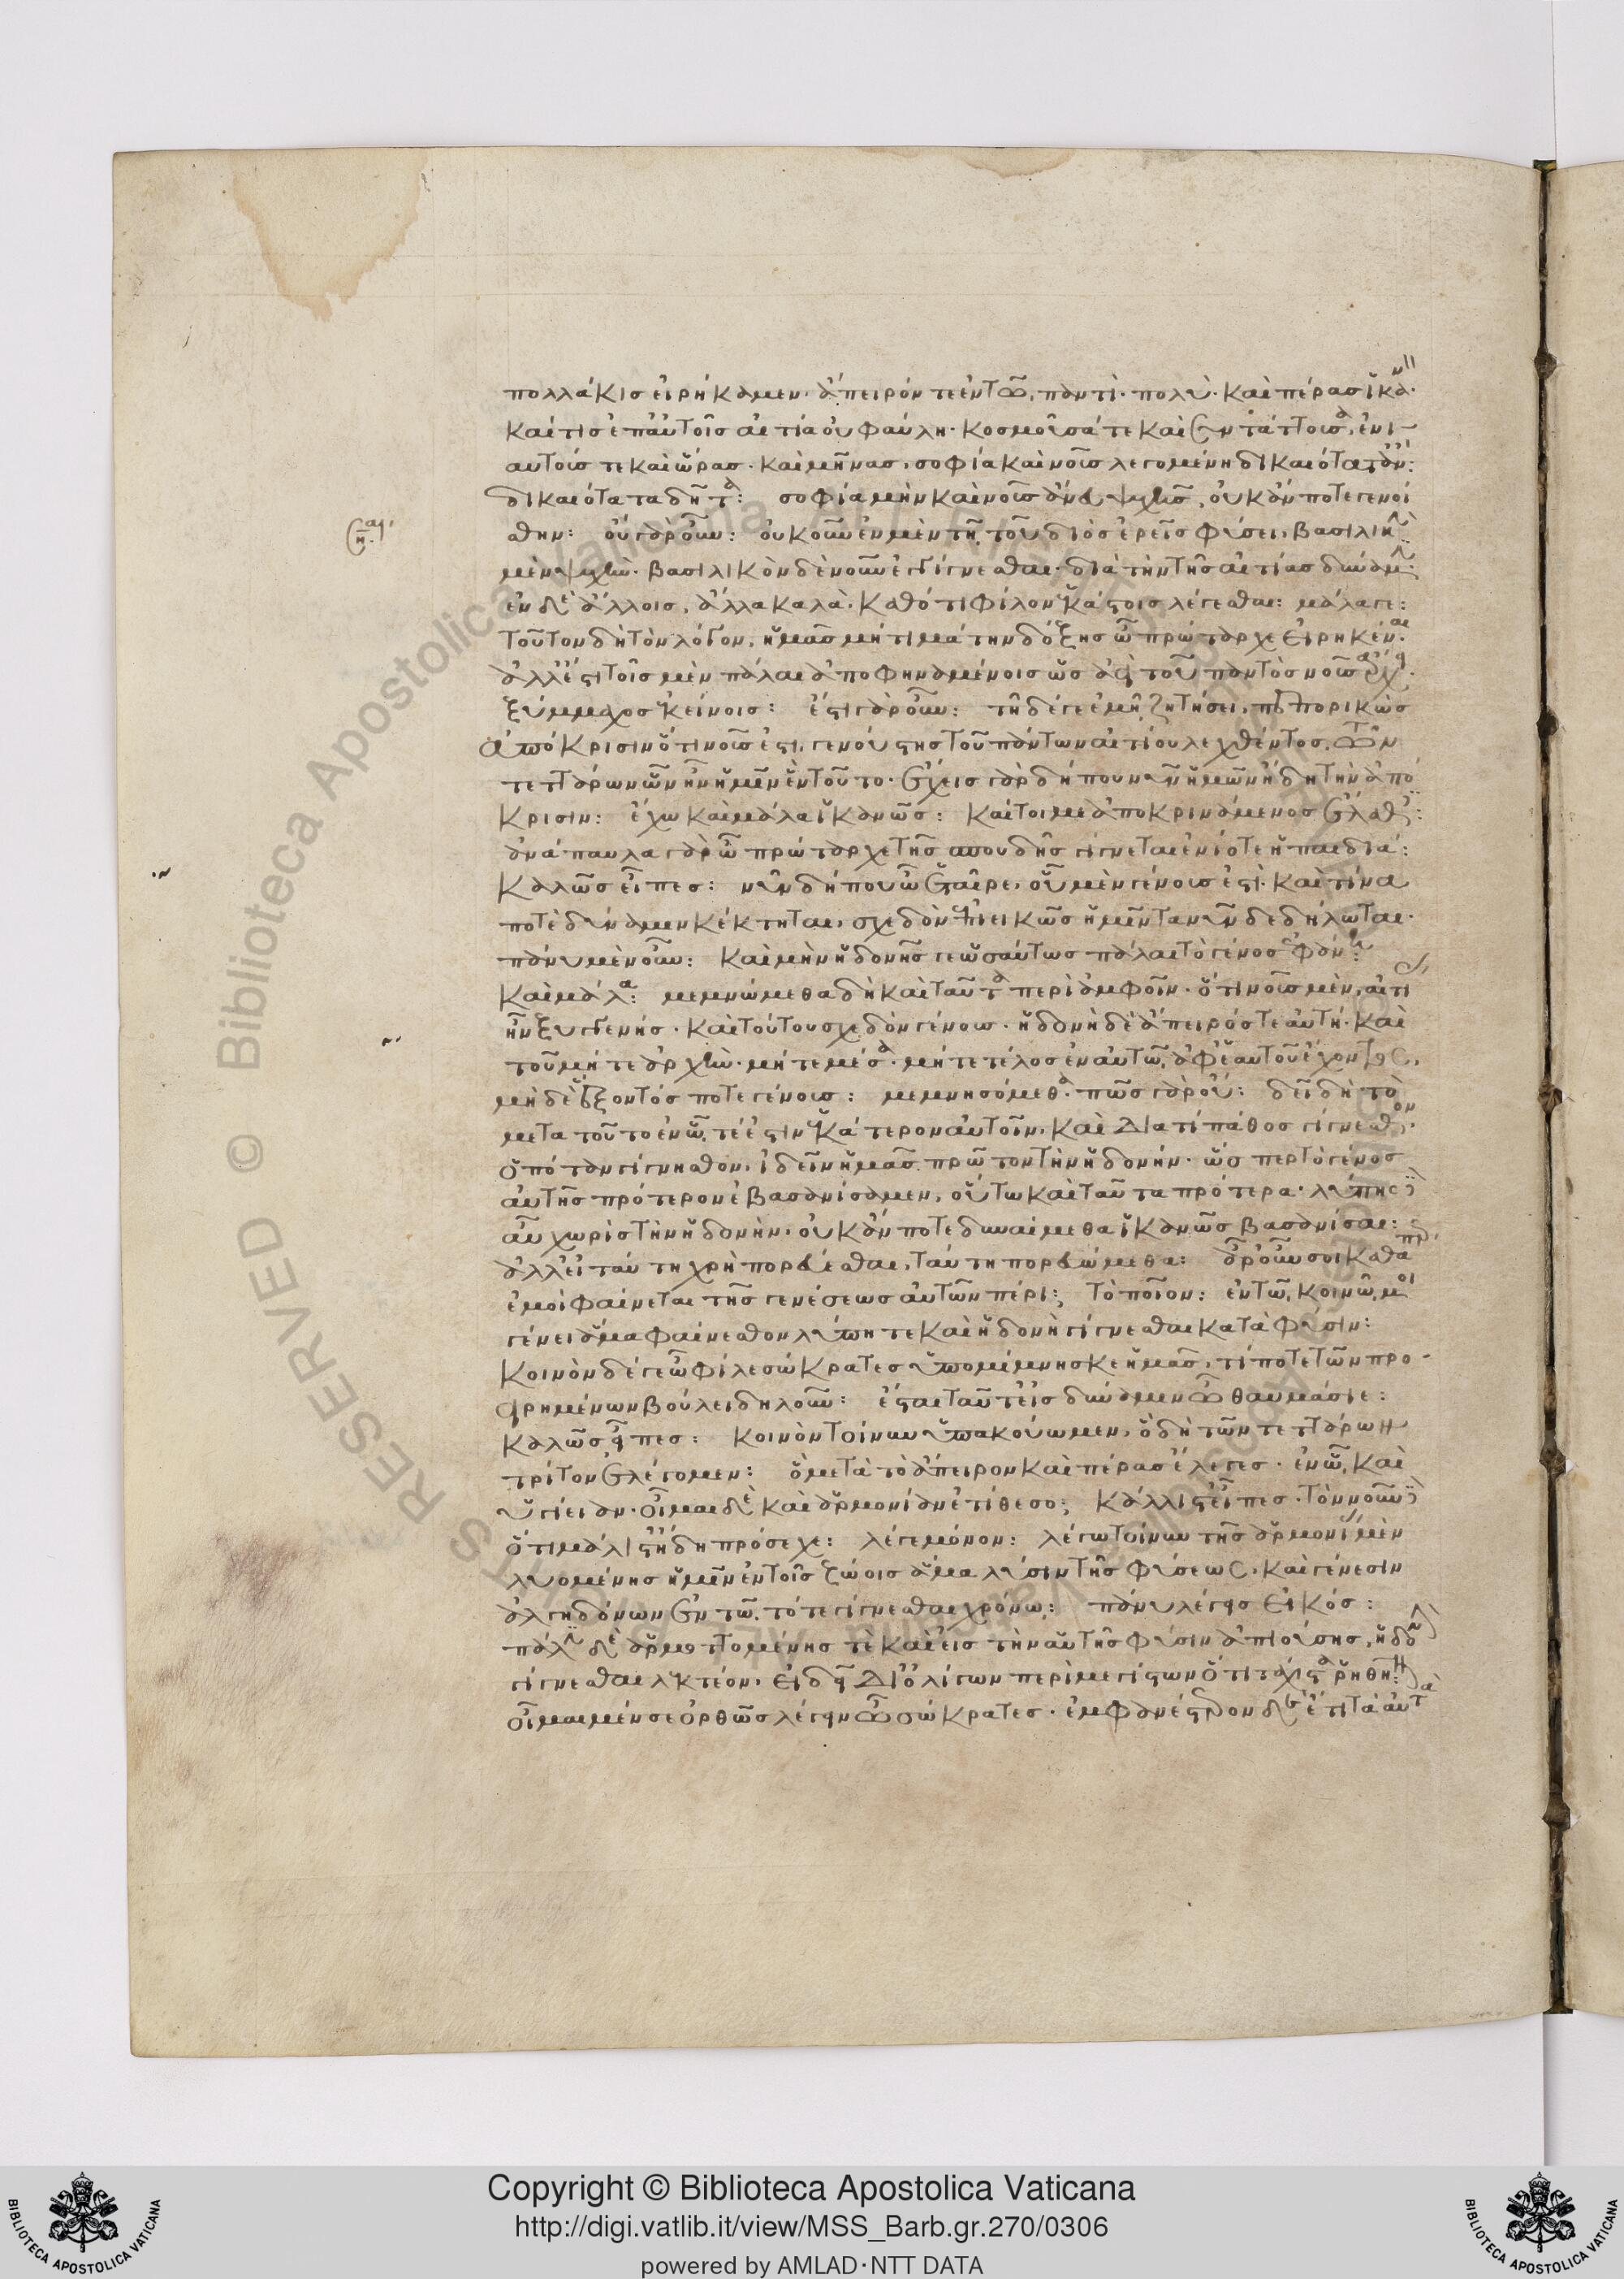 πολλάκις εἰρήκαμεν. ἄπειρόν τε ἐν τῶ παντὶ πολὺ. καὶ πέρας ἱκανόν.
καί τις ἐπ' αὐτοῖς αἰτία οὐ φαύλη. κοσμοῦσά τε καὶ συντάττουσα, ἐνι
αυτούς τε καὶ ὥρας. καὶ μῆνας, σοφία καὶ νοῦς λεγομένη δικαιότατ' ἄν:
δικαιότατα δῆτα: σοφία μὴν καὶ νοῦς ἄνευ ψυχῆς, οὐκ ἄν ποτε γενοί
σθην: οὐ γὰρ οὖν: οὐκοῦν ἐν μὲν τῇ τοῦ διὸς ἐρεῖς φύσει, βασιλικὴν
μὲν ψυχὴν. βασιλικὸν δὲ νοῦν ἐγγίγνεσθαι. διὰ τὴν τῆς αἰτίας δύναμιν.
ἐν δὲ ἄλλοις, ἄλλα καλὰ. καθότι φίλον ἑκάστοις λέγεσθαι: μάλα γε:
τοῦτον δὴ τὸν λόγον, ἡμᾶς μή τι μάτην δόξης ὦ πρώταρχε εἰρηκέναι.
ἀλλ' ἔστι τοῖς μὲν πάλαι ἀποφηναμένοις ὡς ἀεὶ τοῦ παντὸς νοῦς ἄρχει.
ξύμμαχος κείνοις: ἔστι γὰρ οὖν: τῇ δέ γε ἐμῇ ζητήσει, πεπορικὼς
ἀπόκρισιν ὅτι νοῦς ἐστι, γενούστης τοῦ πάντων αἰτίου λεχθέντος. τῶν
τεττάρων ὧν ἦν ἡμῖν ἓν τοῦτο. ἔχεις γὰρ δήπου νῦν ἡμῶν ἤδη τὴν ἀπό
κρισιν: ἔχω καὶ μάλα ἱκανῶς: καίτοι με ἀποκρινάμενος ἔλαθες:
ἀνάπαυλα γὰρ ὦ πρώταρχε τῆς σπουδῆς γίγνεται ἐνίοτε ἡ παιδιά:
καλῶς εἶπες: νῦν δήπου ὦ ἑταῖρε, οὗ μὲν γένους ἐστὶ. καὶ τίνα
ποτὲ δύναμιν κέκτηται, σχεδὸν ἐπιεικῶς ἡμῖν τανῦν δεδήλωται.
πάνυ μὲν οὖν: καὶ μὴν ἡδονῆς γε ὡσαύτως πάλαι τὸ γένος ἐφάνη:
καὶ μάλα: μεμνώμεθα δὴ καὶ ταῦτα περὶ ἀμφοῖν. ὅτι νοῦς μὲν, αἰτί
ἦν ξυγγενής. καὶ τούτου σχεδὸν γένους. ἡδονὴ δὲ ἄπειρός τε αὐτή. καὶ
τοῦ μήτε ἀρχὴν. μήτε μέσα. μήτε τέλος ἐν αὑτῶ ἀφ' ἑαυτοῦ ἔχοντος,
μηδὲ ἕξοντός ποτε γένους: μεμνησόμεθα. πῶς γὰρ οὔ: δεῖ δὴ τὸ
μετα τοῦτο ἐν ὧ τέ ἐστιν ἑκάτερον αὐτοῖν, καὶ διατί πάθος γίγνεσθον
ὁπόταν γίγνησθον, ἰδεῖν ἡμᾶς. πρῶτον τὴν ἡδονήν. ὥσπερ τὸ γένος
αὐτῆς πρότερον ἐβασανίσαμεν, οὕτω καὶ ταῦτα πρότερα. λύπης
αὖ χωρὶς τὴν ἡδονὴν, οὐκ ἄν ποτε δυναίμεθα ἱκανῶς βασανίσαι:
ἀλλ' εἰ ταύτη χρὴ πορεύεσθαι, ταύτη πορευώμεθα: ἆρ' οὖν σοι καθάπερ
ἐμοὶ φαίνεται τῆς γενέσεως αὐτῶν πέρι; τὸ ποῖον: ἐν τῶ κοινῶ μοι
γένει ἅμα φαίνεσθον λύπη τε καὶ ἡδονὴ γίγνεσθαι κατὰ φύσιν:
κοινὸν δέ γε ὦ φίλε σώκρατες ὑπομίμνησκε ἡμᾶς, τί ποτε τῶν προ
ειρημένων βούλει δηλοῦν: ἔσται ταῦτ' εἰς δύναμιν ὦ θαυμάσιε:
καλῶς εἶπες: κοινὸν τοίνυν ὑπακούωμεν, ὃ δὴ τῶν τεττάρων
τρίτον ἐλέγομεν: ὃ μετὰ τὸ ἄπειρον καὶ πέρας ἔλεγες. ἐν ὧ καὶ
ὑγίειαν. οἶμαι δὲ καὶ ἁρμονίαν ἐτίθεσο; κάλλιστ' εἶπες. τὸν νοῦν
ὅτι μάλιστ' ἤδη πρόσεχε: λέγε μόνον: λέγω τοίνυν τῆς ἁρμονίας μὲν
λυομένης ἡμῖν ἐν τοῖς ζώοις ἅμα λύσιν τῆς φύσεως, καὶ γένεσιν
ἀλγηδόνων ἐν τῶ τότε γίγνεσθαι χρόνω: πάνυ λέγεις εἰκός:
πάλιν δὲ ἁρμοττομένης τὲ καὶ εἰς τὴν αὑτῆς φύσιν ἀπιούσης, ἡδονὴν
γίγνεσθαι λεκτέον, εἰ δεῖ δι' ὀλίγων περὶ μεγίστων ὅτι τάχιστα ῥηθῆναι:
οἶμαι μέν σε ὀρθῶς λέγειν ὦ σώκρατες. ἐμφανέστερον δὲ ἔτι ταὐτὰ